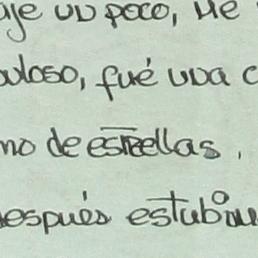 aje un poco, Me
uloso, fué una c
mo de estrellas.
después estubim